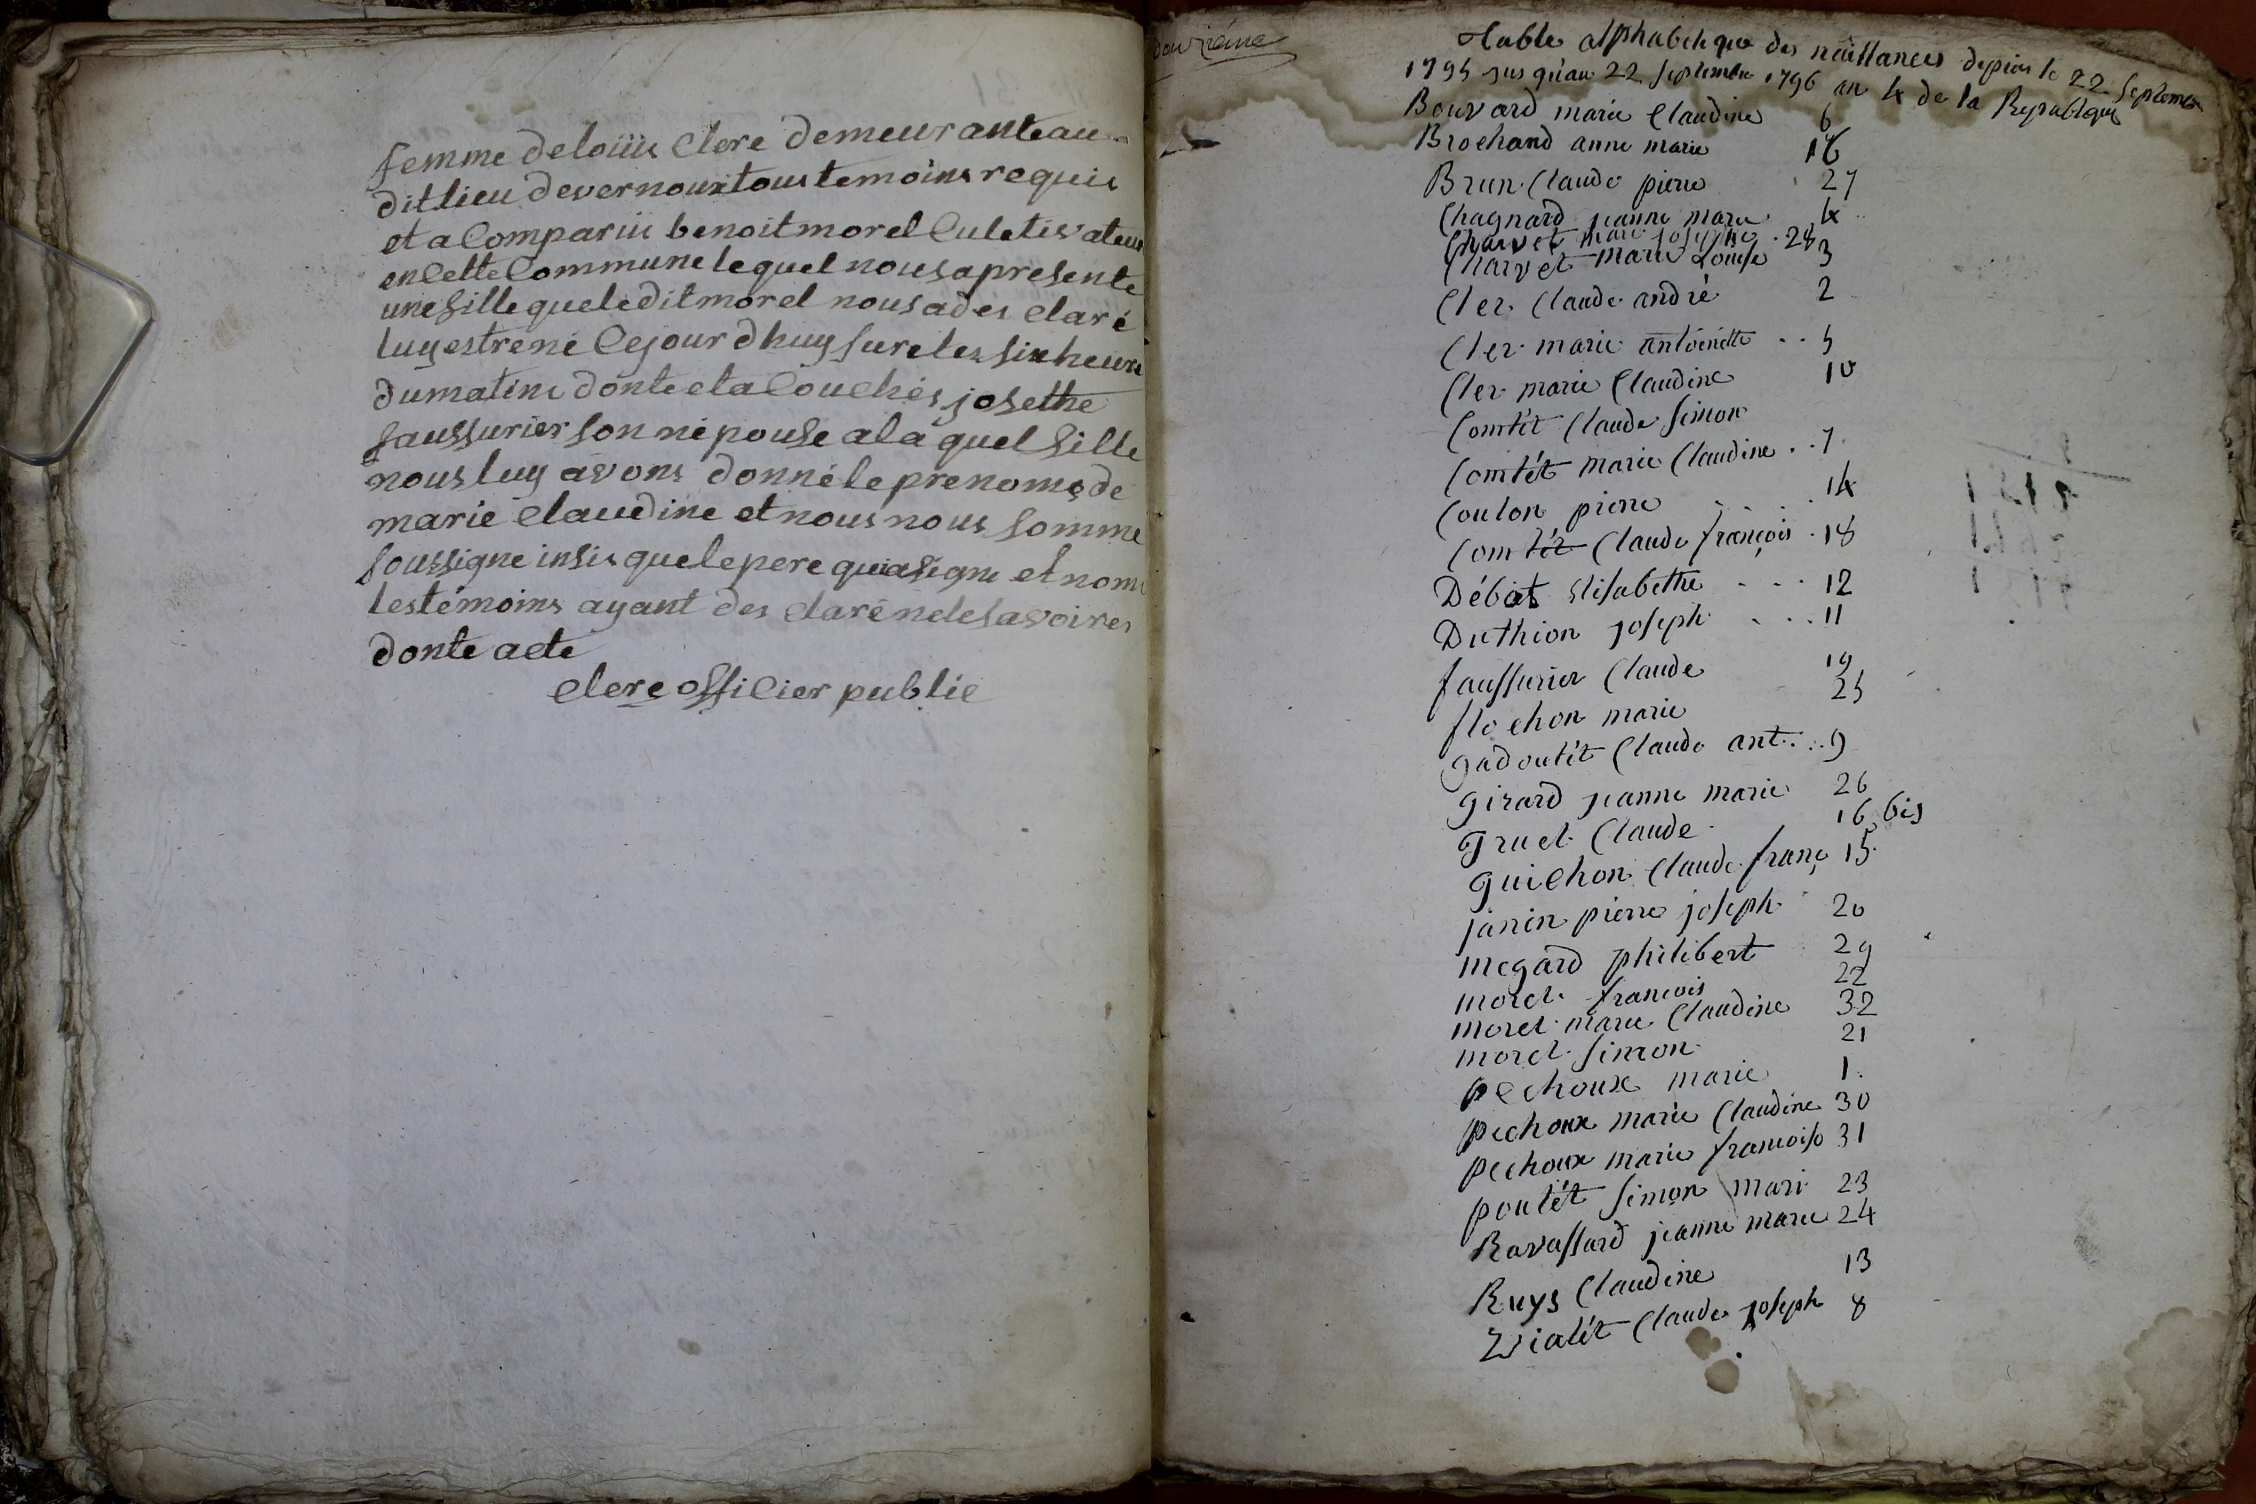 femme de loüis Clerc demeurante au
dit lieu de vernoux tous temoins requis
et a Comparüi benoit morel Culetivateur
en Cette Commune le quel nous a presente
une fille que le dit morel nous a des claré
luy estre né Ce jour dhuy sure les six heure
du matine donte et a Couchés josethe
faussurier son népouse a la quel fille
nous luy avons donné le prenome de
marie Claudine et nous nous somme
soussigne insis que le pere qui a signe et nom
les témoins ayant des claré ne le savoires
donte acte
Clerc officier public
douzieme
table alphabetique des naissances depuis le 22 septembre
1795 jusqu'au 22 septembre 1796 an 4 de la Republique
Bouvard marie Claudine 6
Brochand anne marie 16
Brun Claude pierre 27
Chagnard jeanne marie 4
Charvet marie josephe 28
Charvet marie Louise 3
Cler Claude andré 2
Cler marie antoinette .. 5
Cler marie Claudine 10
Comtét Claude simon
Comtét marie Claudine .. 7
Coulon pierre 14
Comtét Claude françois . 18
Débat elisabethe . . . 12
Duthion joseph . . . 11
faussurier Claude 19
flochon marie 25
gadoutét Claude ant. . . 9
girard jeanne marie 26
gruel Claude 16 bis
guichon Claude franç 15
janin pierre joseph 20
megard philibert 29
morel francois 22
morel marie Claudine 32
morel simon 21
pechoux marie 1.
pechoux marie Claudine 30
pechoux marie francoise 31
poulét simon mari 23
Ravassard jeanne marie 24
Ruys Claudine 13
Vialét Claude joseph 8